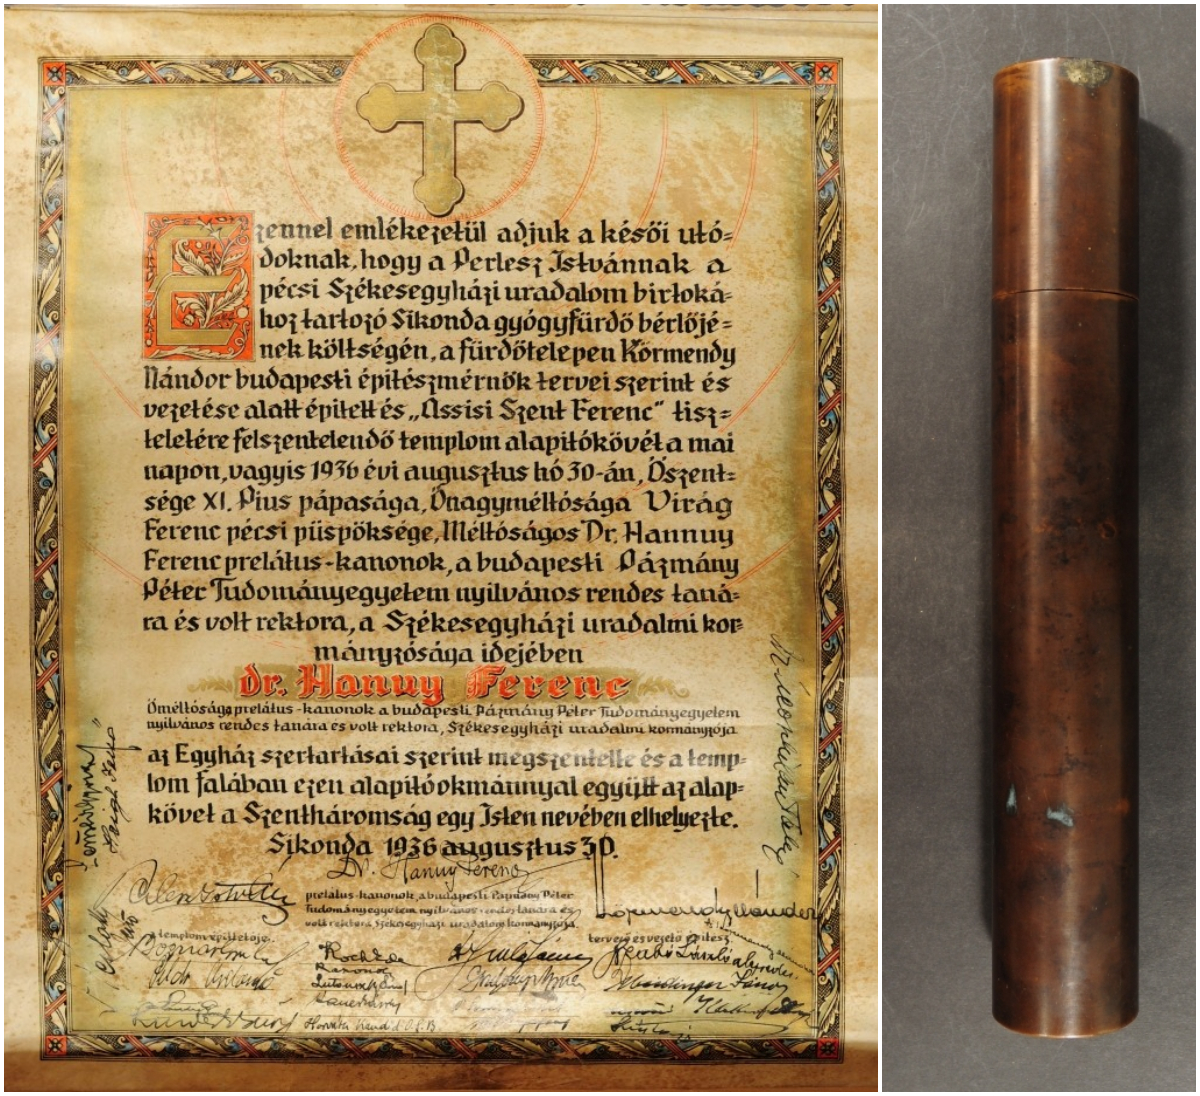 Ezennel emlékezetül adjuk a késői utó=
doknak, hogy a Perlesz Istvánnak a
pécsi Székesegyházi uradalom birtoká=
hoz tartozó Sikonda gyógyfürdő bérlőjé=
nek költségén, a fürdőtelepen Körmendy
Nándor budapesti építészmérnök tervei szerint és
vezetése alatt épitett és „Assisi Szent Ferenc" tisz=
teletére felszentelendő templom alapitókövét a mai
napon, vagyis 1936 évi augusztus hó 30-án, Őszent=
sége XI. Pius pápasága, Őnagyméltósága Virág
Ferenc pécsi püspöksége, Méltóságos Dr. Hannuy
Ferenc prelátus-kanonok, a budapesti Pázmány
Péter Tudományegyetem nyilvános rendes taná=
ra és volt rektora, a Székesegyházi uradalmi kor=
mányzósága idejében
dr. Hanuy Ferenc
Őméltósága prelátus-kanonok a budapesti Pázmány Péter Tudományegyetem
nyilvános rendes tanára és volt rektora, Székesegyházi uradalmi kormányzója
az Egyház szertartásai szerint megszentelte és a temp=
lom falában ezen alapitóokmánnyal együtt az alap=
követ a Szentháromság egy Isten nevében elhelyezte.
Sikonda 1936 augusztus 30.
Dr. Hanuy Ferenc
prelátus-kanonok, a budapesti Pázmány Péter
Tudományegyetem nyilvános rendes tanára és
volt rektora Székesegyházi uradalom kormányzója.
a templom épittetője.
Körmendy Nándor
tervező és vezető épitész.
Koch Ede
Szabó László
kanonok
János
Horváth